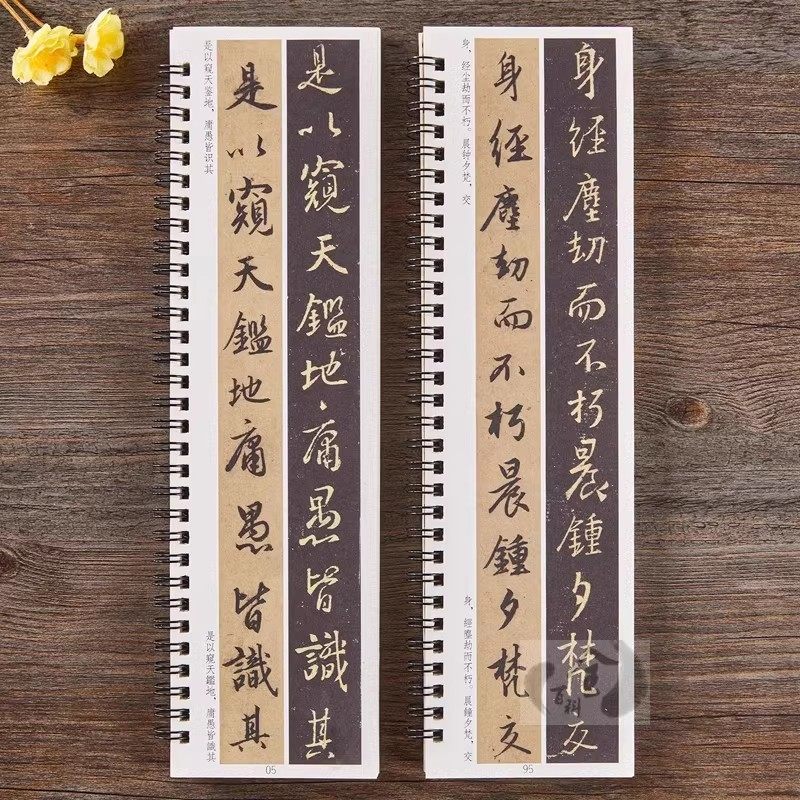 是以窥天鉴地，庸愚皆识其
是以窺天鑑地，庸愚皆識其
是以窺天鑑地庸愚皆識其
是以窺天鑑地庸愚皆識其
05
身，经尘劫而不朽。晨钟夕梵，交
身，經塵劫而不朽。晨鐘夕梵，交
身經塵劫而不朽晨鍾夕梵交
身經塵劫而不朽晨鍾夕梵交
95